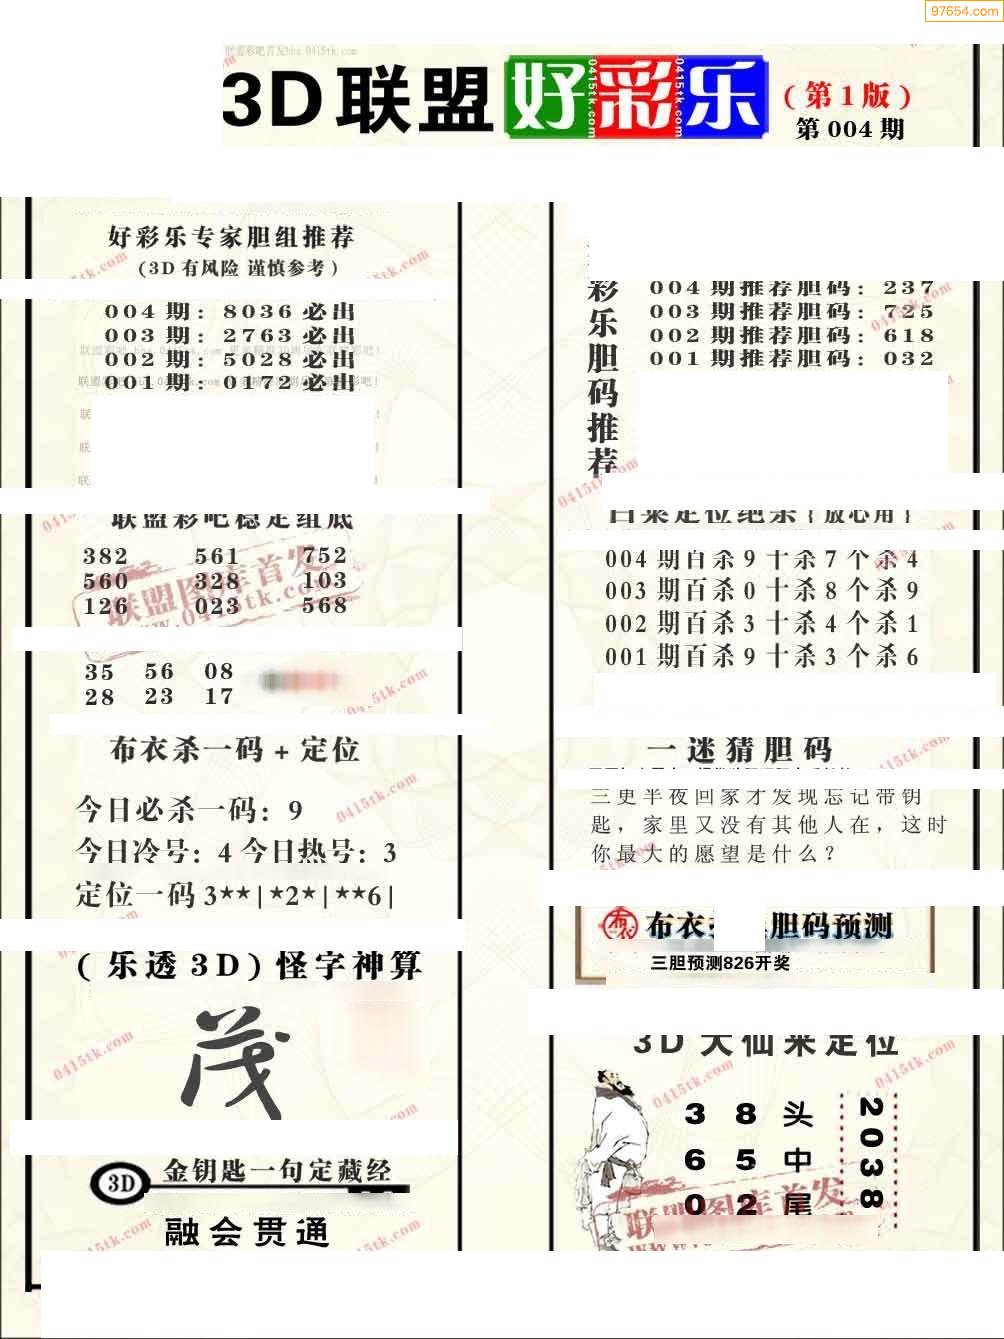 97654.com
3D联盟好彩乐
(第1版)
第004期
好彩乐专家胆组推荐
(3D有风险 谨慎参考)
004期: 8036必出
003期: 2763必出
002期: 5028必出
001期: 0172必出
联盟彩吧稳定组底
382 561 752
560 328 103
126 023 568
35 56 08
28 23 17
布衣杀一码+定位
今日必杀一码: 9
今日冷号: 4 今日热号: 3
定位一码3**|*2*|**6|
(乐透3D)怪字神算
茂
3D 金钥匙一句定藏经
融会贯通
彩乐胆码推荐
004期推荐胆码: 237
003期推荐胆码: 725
002期推荐胆码: 618
001期推荐胆码: 032
004期百杀9十杀7个杀4
003期百杀0十杀8个杀9
002期百杀3十杀4个杀1
001期百杀9十杀3个杀6
一迷猜胆码
三更半夜回家才发现忘记带钥
匙，家里又没有其他人在，这时
你最大的愿望是什么?
布衣
胆码预测
三胆预测826开奖
3D大仙来定位
3 8 头
6 5 中
0 2 尾
2038
联盟图库首发
0415tk.com